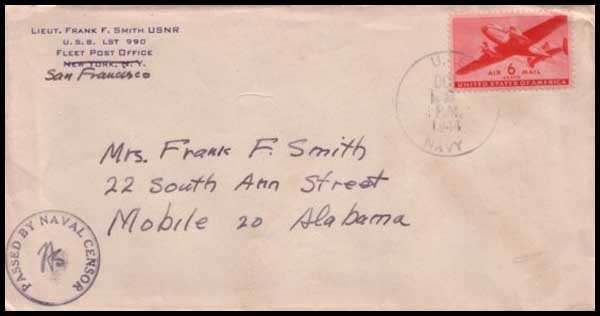 LIEUT. FRANK F. SMITH USNR
U.S.S. LST 990
FLEET POST OFFICE
NEW YORK, N.Y.
San Francisco
AIR 6 MAIL
CENTS
UNITED STATES OF AMERICA
U.S.
P.M.
1944
NAVY
Mrs. Frank F. Smith
22 South Ann Street
Mobile 20 Alabama
PASSED BY NAVAL CENSOR